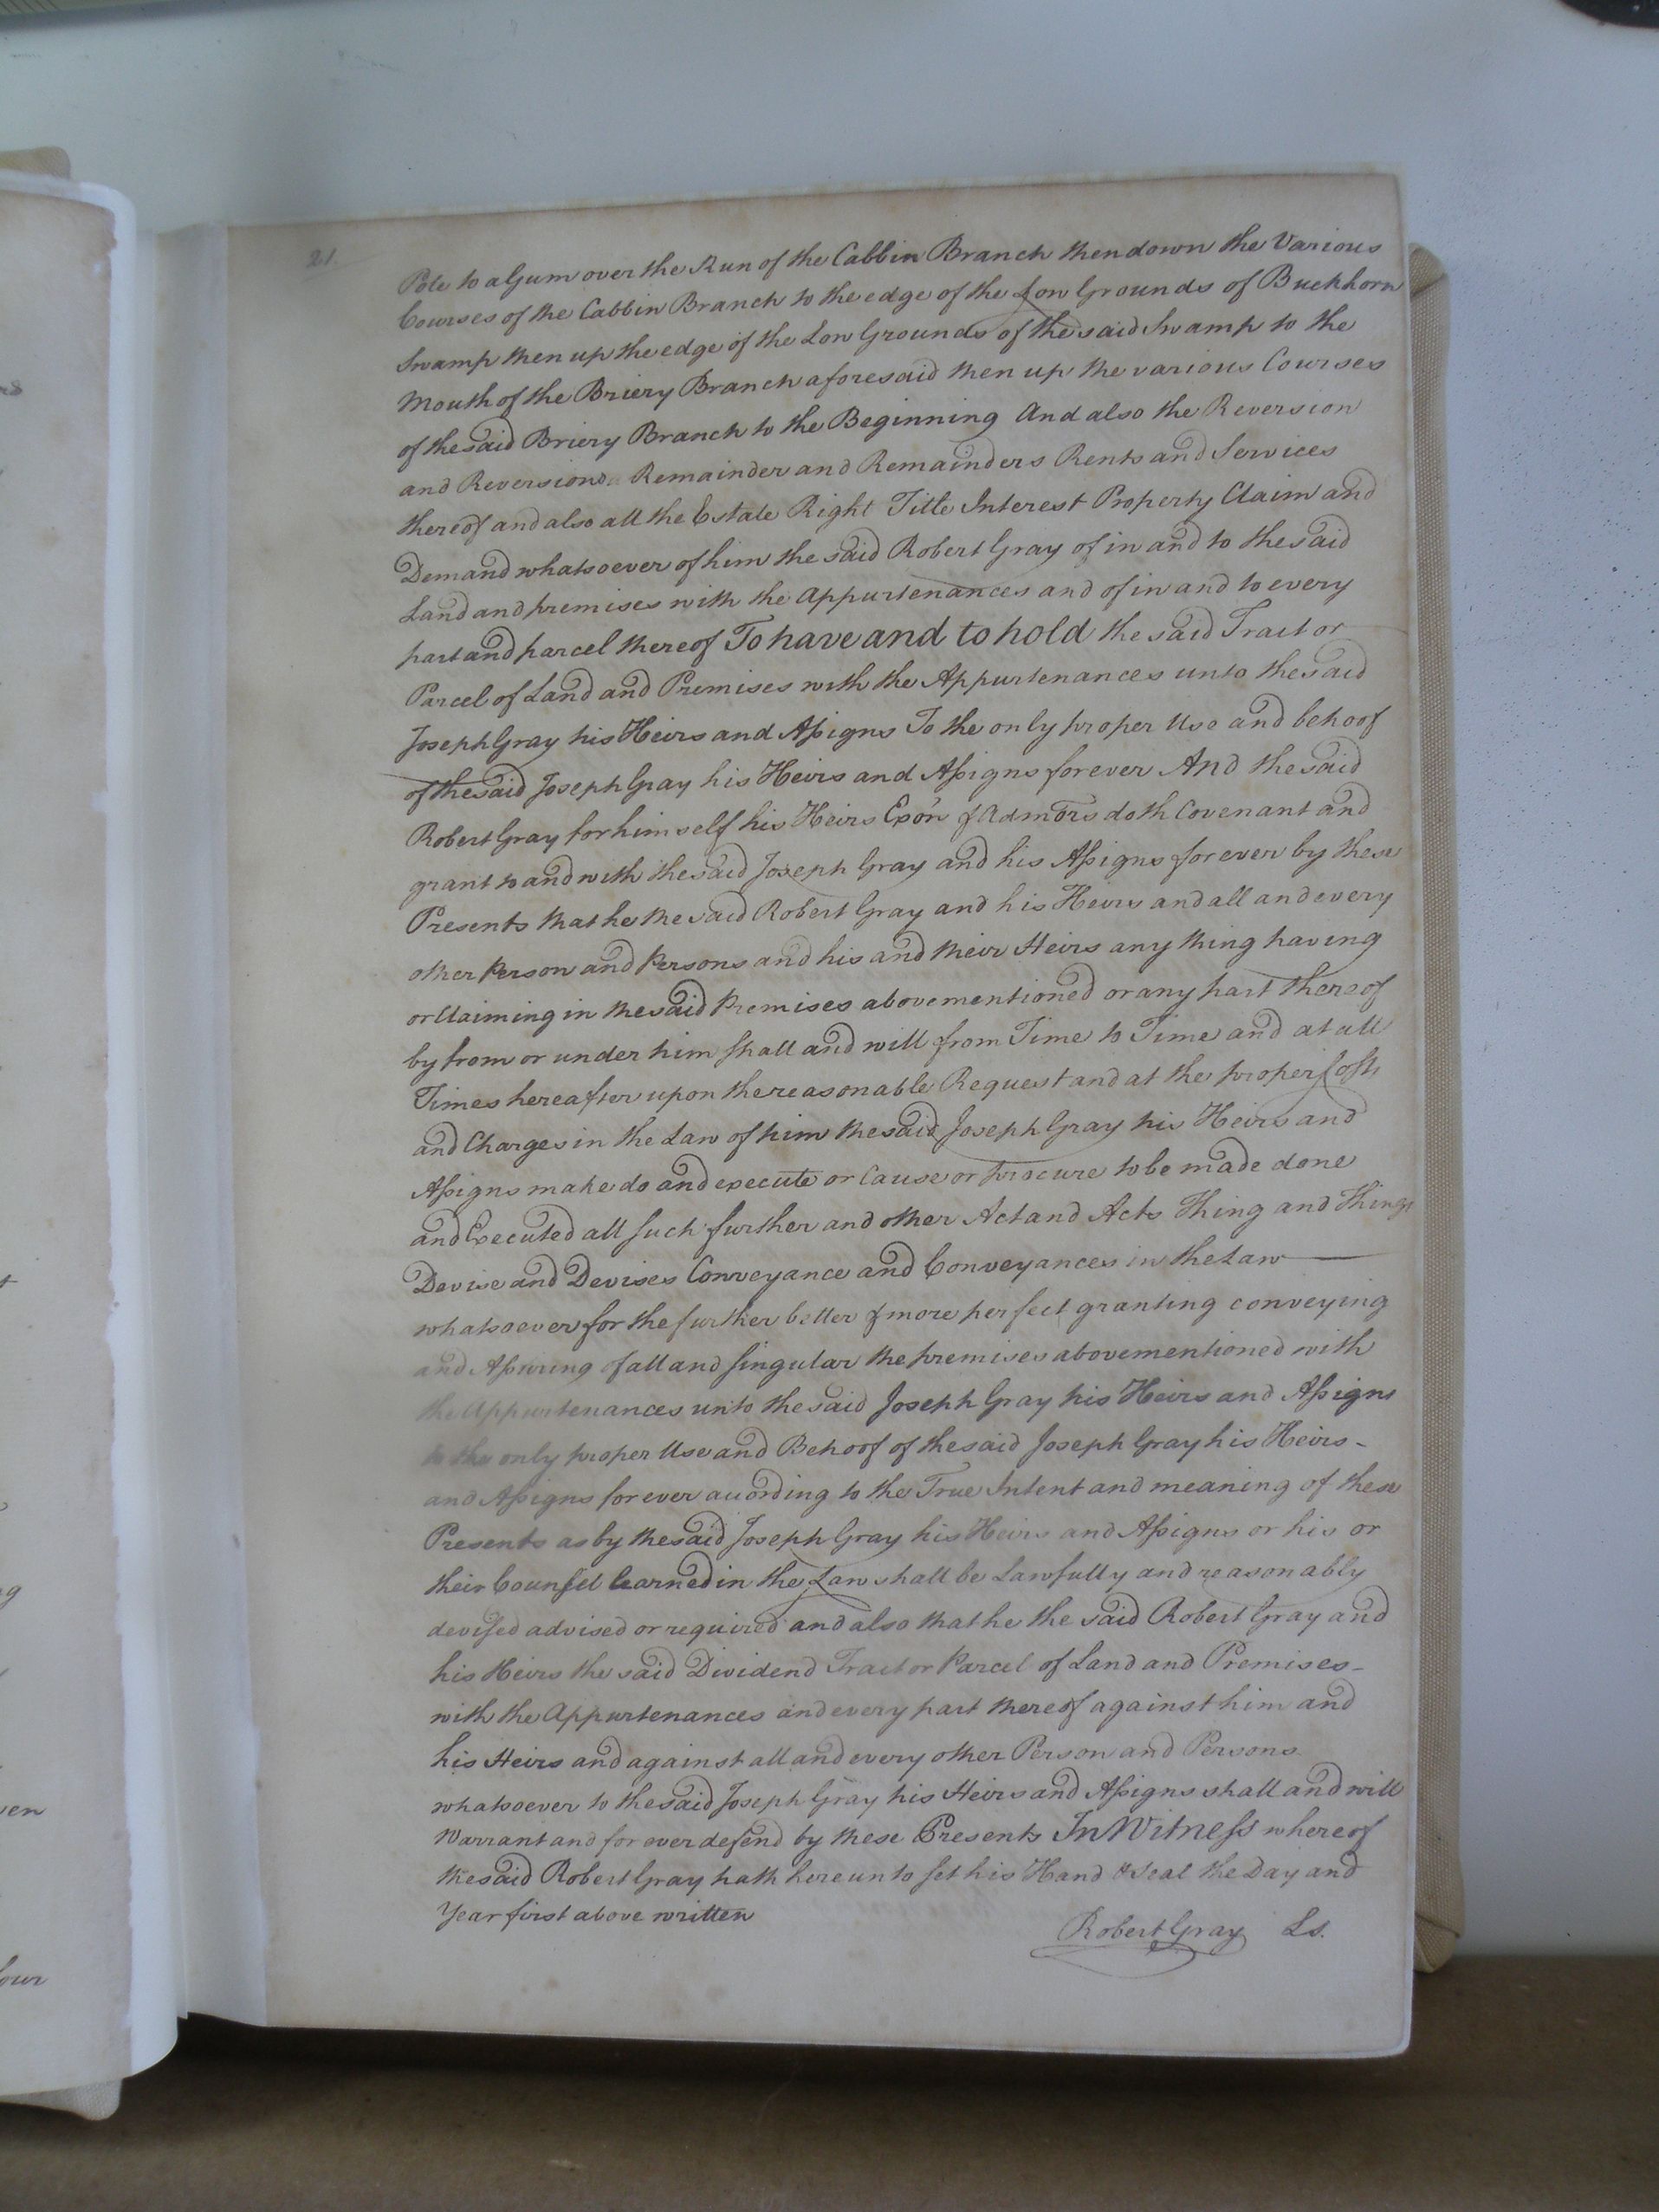 21.
Pole to a Gum over the Run of the Cabbin Branch then down the Various
Courses of the Cabbin Branch to the edge of the Low Grounds of Buckhorn
Swamp then up the edge of the Low Grounds of the said Swamp to the
Mouth of the Briery Branch aforesaid then up the various Courses
of the said Briery Branch to the Beginning And also the Reversion
and Reversions Remainder and Remainders Rents and Services
thereof and also all the Estate Right Title Interest Property Claim and
Demand whatsoever of him the said Robert Gray of in and to the said
Land and premises with the Appurtenances and of in and to every
part and parcel thereof To have and to hold the said Tract or
Parcel of Land and Premises with the Appurtenances unto the said
Joseph Gray his Heirs and Aſsigns To the only proper Use and behoof
of the said Joseph Gray his Heirs and Aſsigns forever And the said
Robert Gray for himself his Heirs Exo'rs & Admors doth Covenant and
grant to and with the said Joseph Gray and his Aſsigns forever by these
Presents that he the said Robert Gray and his Heirs and all and every
other Person and Persons and his and their Heirs any thing having
or Claiming in the said Premises abovementioned or any part thereof
by from or under him shall and will from Time to Time and at all
Times hereafter upon the reasonable Request and at the proper Costs
and Charges in the Law of him the said Joseph Gray his Heirs and
Aſsigns make do and execute or Cause or procure to be made done
and Executed all such further and other Act and Acts Thing and Things
Devise and Devises Conveyance and Conveyances in the Law
whatsoever for the further better & more perfect granting conveying
and Aſsuring of all and singular the premises abovementioned with
the Appurtenances unto the said Joseph Gray his Heirs and Aſsigns
to the only proper Use and Behoof of the said Joseph Gray his Heirs -
and Aſsigns forever according to the True Intent and meaning of these
Presents as by the said Joseph Gray his Heirs and Aſsigns or his or
their Counſel learned in the Law shall be Lawfully and reasonably
deviſed advised or required and also that he the said Robert Gray and
his Heirs the said Dividend Tract or Parcel of Land and Premises -
with the Appurtenances and every part thereof against him and
his Heirs and against all and every other Person and Persons
whatsoever to the said Joseph Gray his Heirs and Aſsigns shall and will
Warrant and for ever defend by these Presents In Witneſs whereof
the said Robert Gray hath hereunto set his Hand & Seal the Day and
Year first above written
Robert Gray Ls.